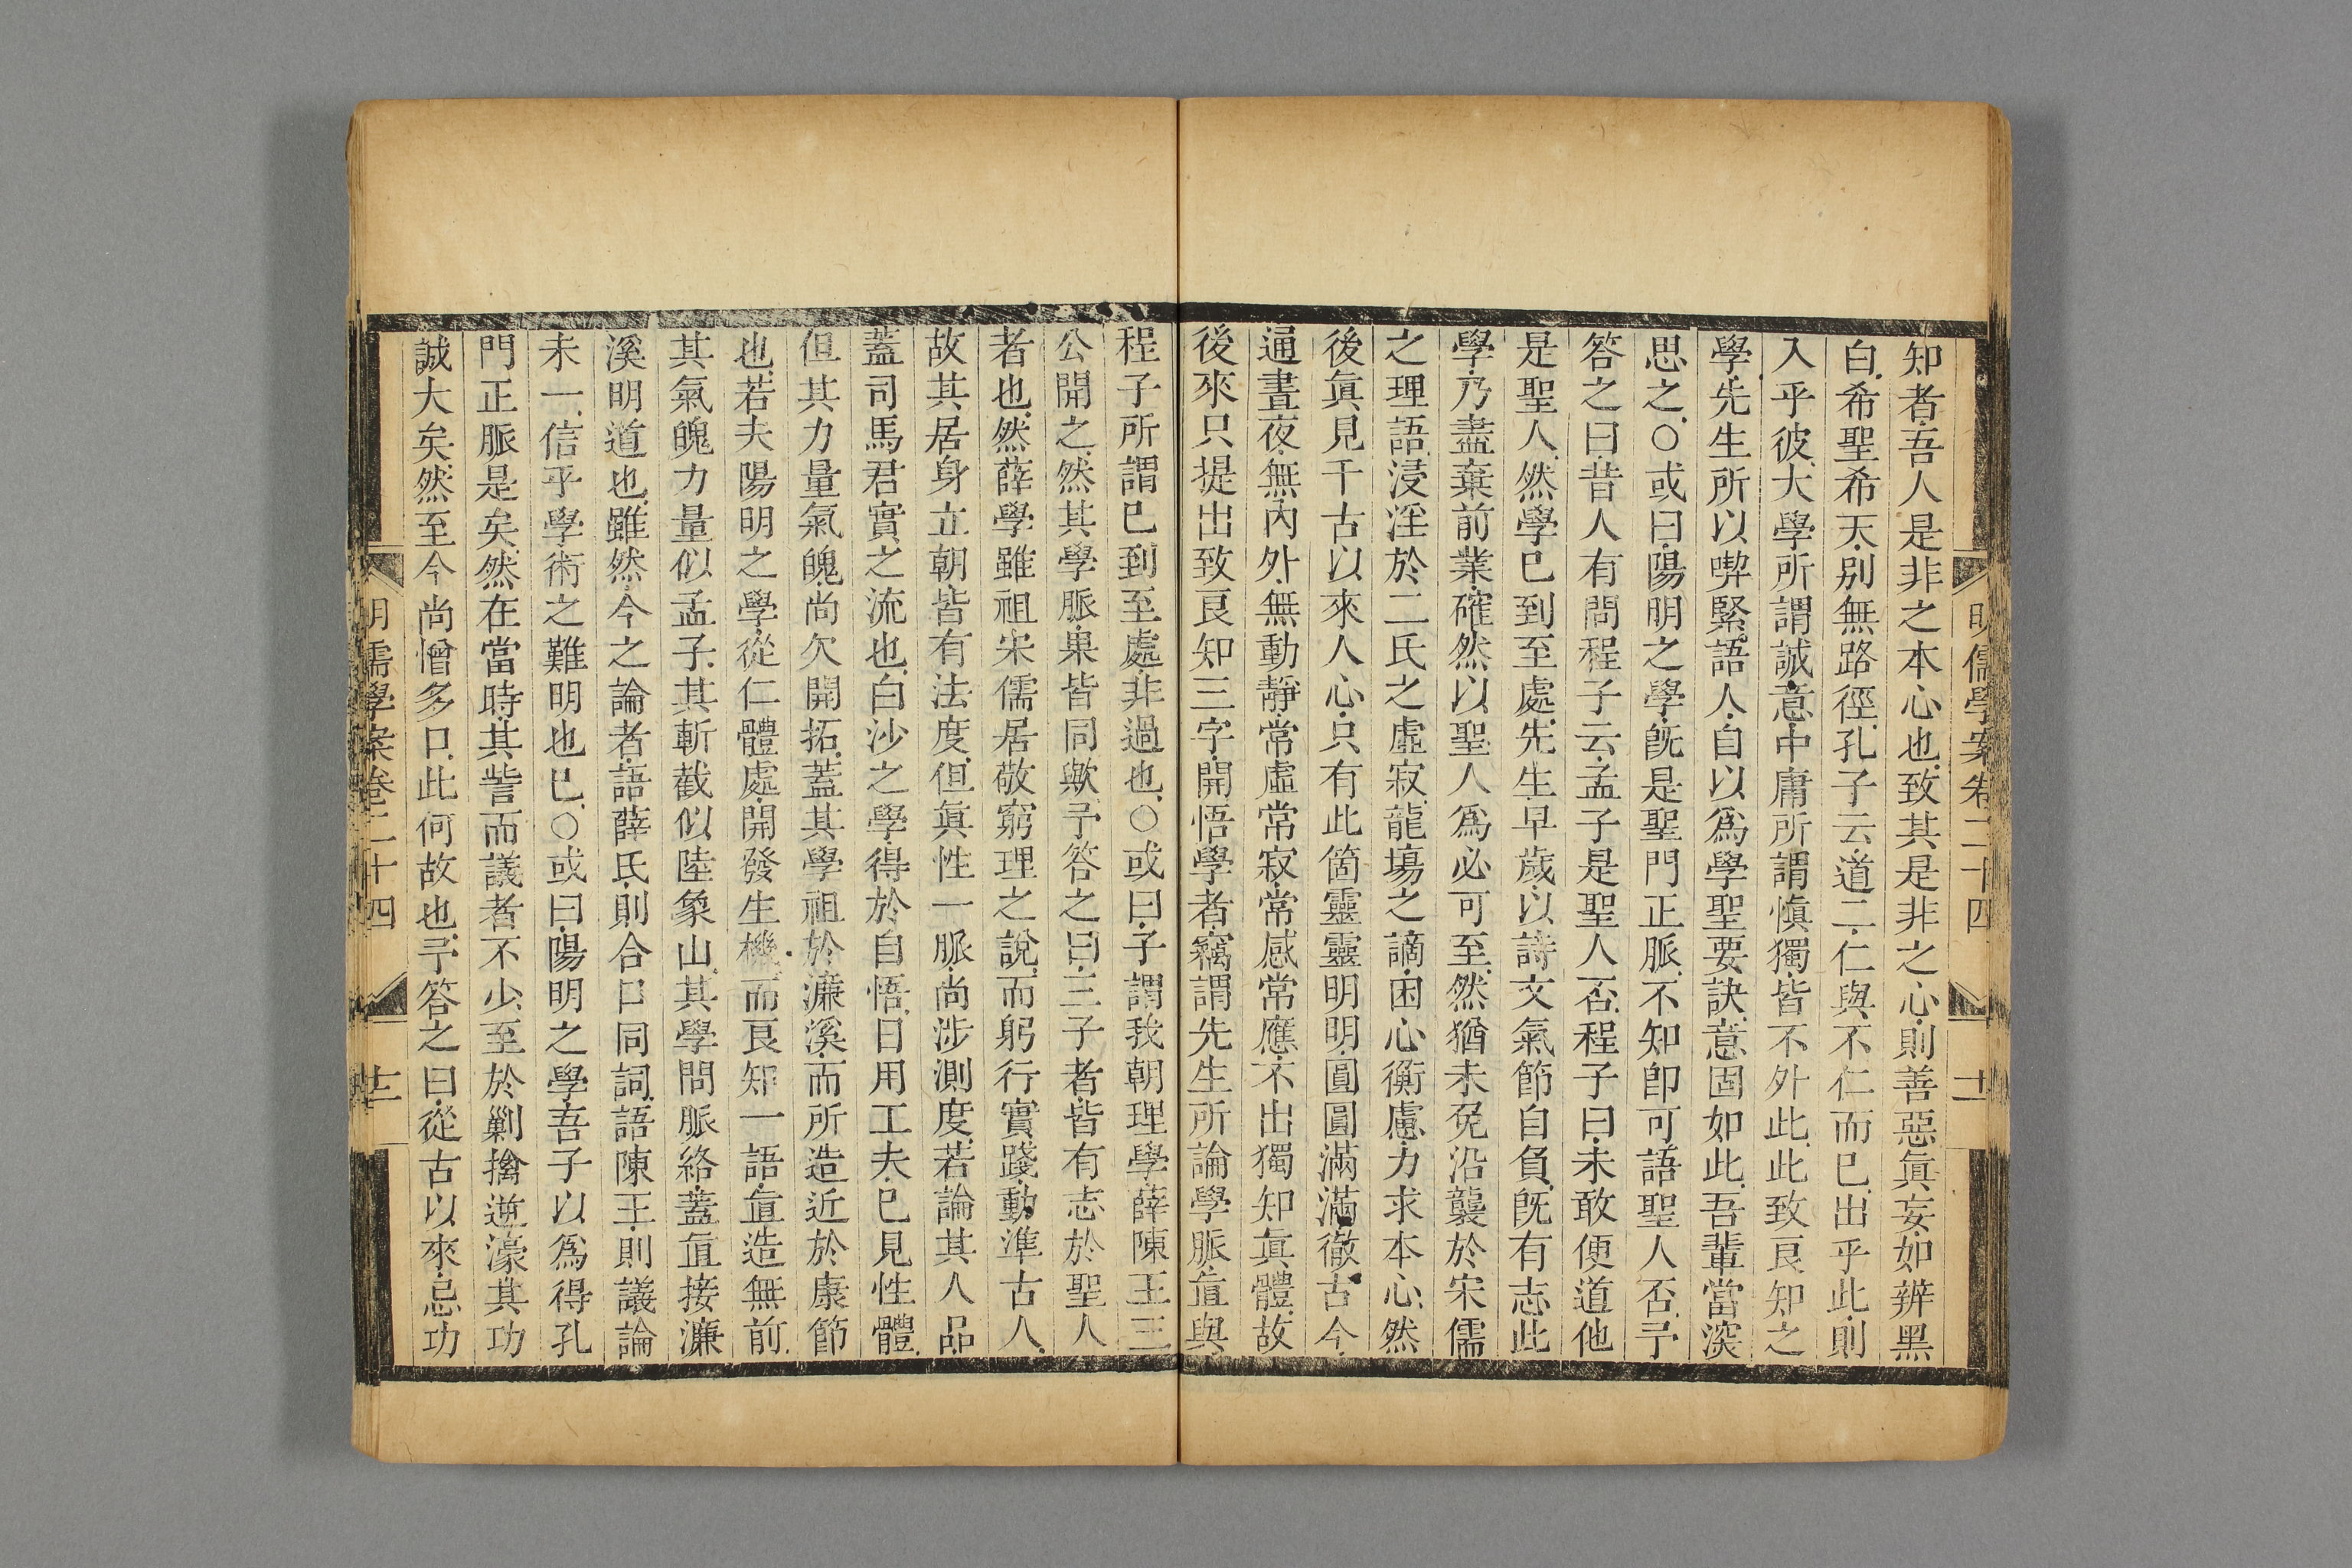 明儒學案卷二十四
十一
知者吾人是非之本心也致其是非之心則善惡眞妄如辨黑
白希聖希天別無路徑孔子云道二仁與不仁而已出乎此則
入乎彼大學所謂誠意中庸所謂愼獨皆不外此此致良知之
學先生所以喫緊語人自以爲學聖要訣意固如此吾輩當深
思之○或曰陽明之學旣是聖門正脈不知卽可語聖人否予
答之曰昔人有問程子云孟子是聖人否程子曰未敢便道他
是聖人然學已到至處先生早歲以詩文氣節自負旣有志此
學乃盡棄前業確然以聖人爲必可至然猶未免沿襲於宋儒
之理語浸淫於二氏之虛寂龍塲之謫困心衡慮力求本心然
後眞見千古以來人心只有此箇靈靈明明圓圓滿滿徹古今
通晝夜無內外無動靜常虛常寂常感常應不出獨知眞體故
後來只提出致良知三字開悟學者竊謂先生所論學脈直與
程子所謂已到至處非過也○或曰子謂我朝理學薛陳王三
公開之然其學脈果皆同歟予答之曰三子者皆有志於聖人
者也然薛學雖祖宋儒居敬窮理之說而躬行實踐動準古人
故其居身立朝皆有法度但眞性一脈尚涉測度若論其人品
蓋司馬君實之流也白沙之學得於自悟日用工夫已見性體
但其力量氣魄尚欠開拓蓋其學祖於濂溪而所造近於康節
也若夫陽明之學從仁體處開發生機而良知一語直造無前
其氣魄力量似孟子其斬截似陸象山其學問脈絡蓋直接濂
溪明道也雖然今之論者語薛氏則合口同詞語陳王則議論
未一信乎學術之難明也已○或曰陽明之學吾子以爲得孔
門正脈是矣然在當時其訾而議者不少至於剿擒逆濠其功
誠大矣然至今尚憎多口此何故也予答之曰從古以來忌功
明儒學案卷二十四
十二